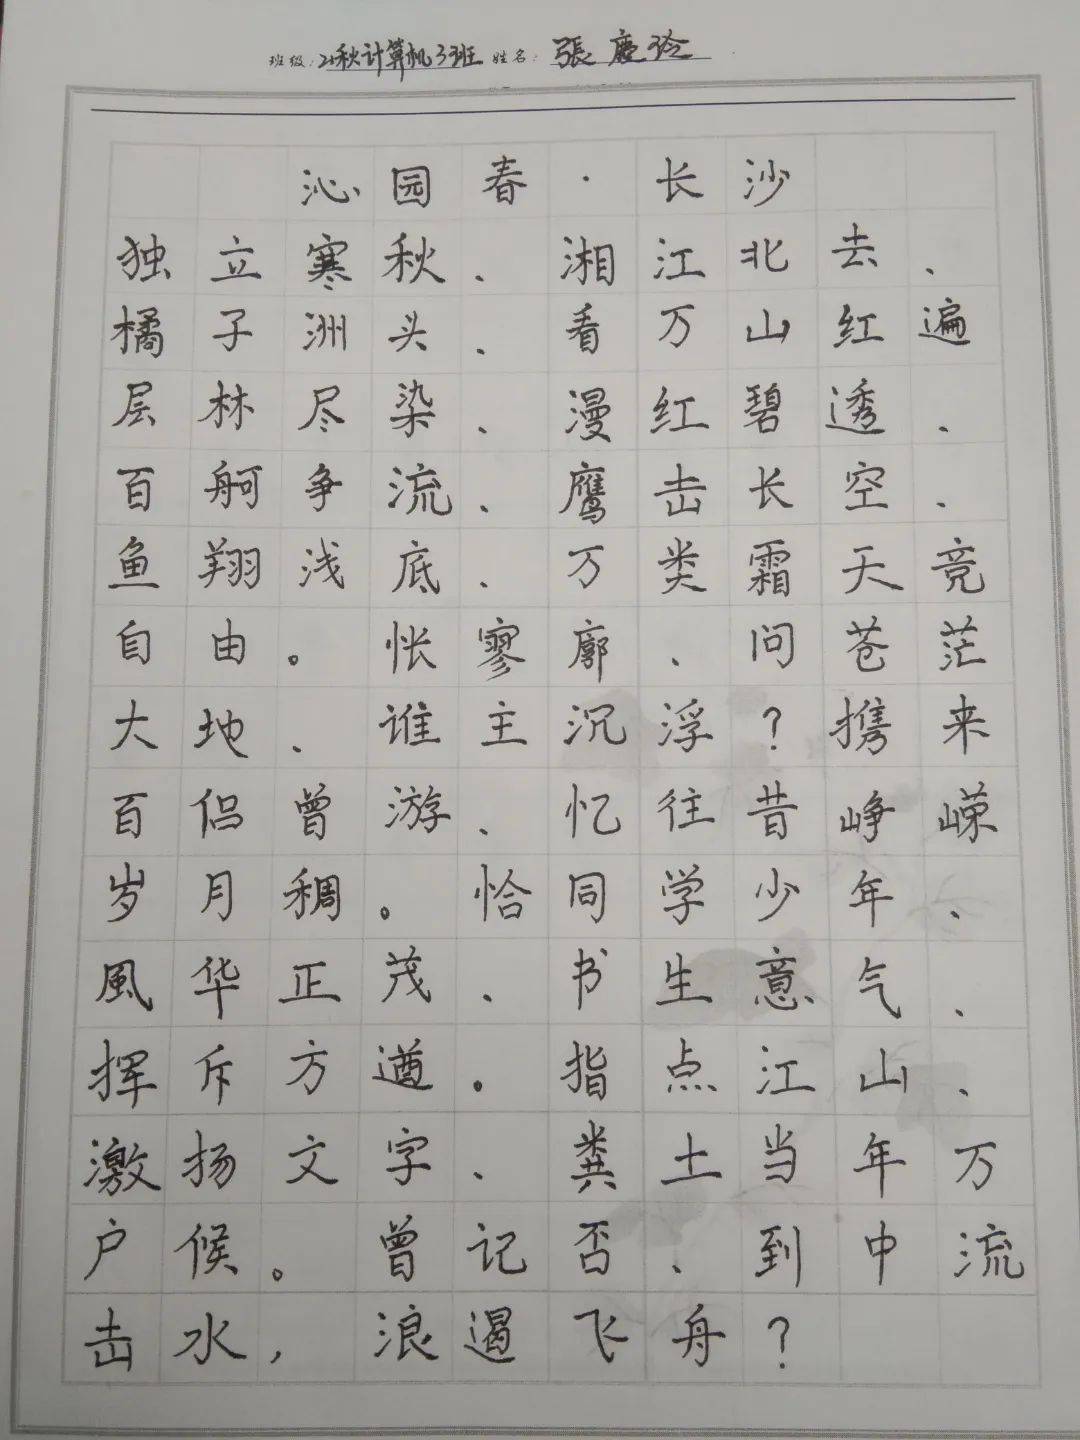 班级:21秋计算机3班 姓名:張慶玲
沁园春·长沙
独立寒秋、湘江北去、
橘子洲头、看万山红遍
层林尽染、漫红碧透、
百舸争流、鹰击长空、
鱼翔浅底、万类霜天竞
自由。怅寥廓、问苍茫
大地、谁主沉浮?携来
百侣曾游、忆往昔峥嵘
岁月稠。恰同学少年、
風华正茂、书生意气、
挥斥方遒。指点江山、
激扬文字、粪土当年万
户候。曾记否、到中流
击水,浪遏飞舟?